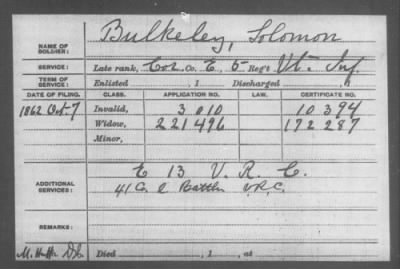 NAME OF SOLDIER: Bulkeley, Solomon
SERVICE: Late rank, Cor. Co. E, 5 Reg't Vt. Inf.
TERM OF SERVICE: Enlisted , 1 Discharged , 1
DATE OF FILING. CLASS. APPLICATION NO. LAW. CERTIFICATE NO.
1862 Oct. 7 Invalid, 3010 10394
Widow, 221496 172287
Minor,
ADDITIONAL SERVICES: E 13 V. R. C.
41 Co. 2 Battln V.R.C.
REMARKS:
Died , 1 , at